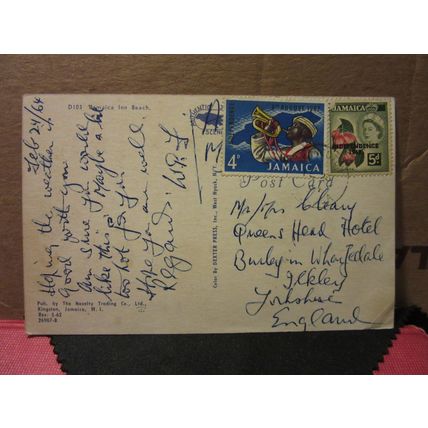 D103 Jamaica Inn Beach.
Feb 24/64
Hoping the weather is
Good with you
am sure you would
like this. Maybe a bit
too hot for you!
Hope you are well.
Regards.
Pub. by The Novelty Trading Co., Ltd.,
Kingston, Jamaica, W. I.
Rev. 5-62
26907-B
Color By DEXTER PRESS, Inc., West Nyack, N.Y.
AUGUST 1962
4D
JAMAICA
JAMAICA
INDEPENDENCE
5D
Post Card
Mr/Mrs Cleary
Queens Head Hotel
Burley in Wharfedale
Ilkley
Yorkshire
England